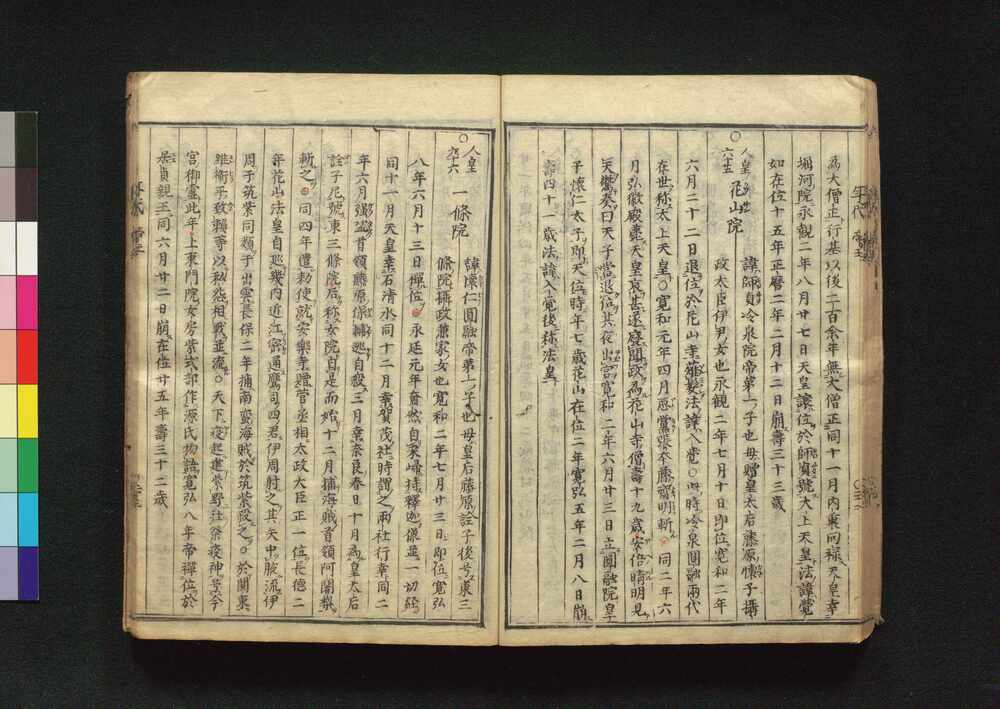 為大僧正行基以後二百余年無大僧正同十一月内裏回禄天皇幸
堀河院永観二年八月廿七日天皇譲位於師貞號太上天皇法諱覚
如在位十五年正暦二年二月十二日崩壽三十三歳
○人皇六十五 花山院 諱師貞冷泉院帝第一子也母贈皇太后藤原懐子攝
政太臣伊尹女也永観二年七月十日即位寛和二年
六月二十二日退位於花山寺薙髪法諱入覚○此時冷泉圓融兩代
在世称太上天皇○寛和元年四月悪黨張本藤齊明斬○同二年六
月弘徽殿薨天皇哀甚遂廃聞政為花山寺僧壽十九歳安倍晴明見
天變奏曰天子當退位其夜出宮寛和二年六月廿三日立圓融院皇
子懐仁太子即天位時年七歳花山在位二年寛弘五年二月八日崩
壽四十一歳法諱入覚後称法皇
○人皇六十六 一條院 諱懐仁圓融帝第一子也母皇后藤原詮子後号東三
條院攝政兼家女也寛和二年七月廿三日即位寛弘
八年六月十三日禅位○永延元年奝然自宋帰持釋迦像並一切経
同十一月天皇幸石清水同十二月幸賀茂社時謂之兩社行幸同二
年六月強盗首領藤原保輔逃自殺三月幸奈良春日十月為皇太后
詮子尼號東三條院后称女院自是而始十二月捕海賊首領阿闍梨
斬之○同四年遣勅使就安樂寺贈菅丞相太政大臣正一位長徳二
年花山法皇自巡幾内近江密通鷹司四君伊周射之其矢中腋流伊
周于筑紫同頼于出雲長保二年捕南蛮海賊於筑紫殺之○於関東
維衡平致頼等以私怨相戦並流○天下疫起建紫野社祭疫神号今
宮御霊此年上東門院女房紫式部作源氏物語寛弘八年帝禅位於
居貞親王同六月廿二日崩在位廿五年壽三十二歳